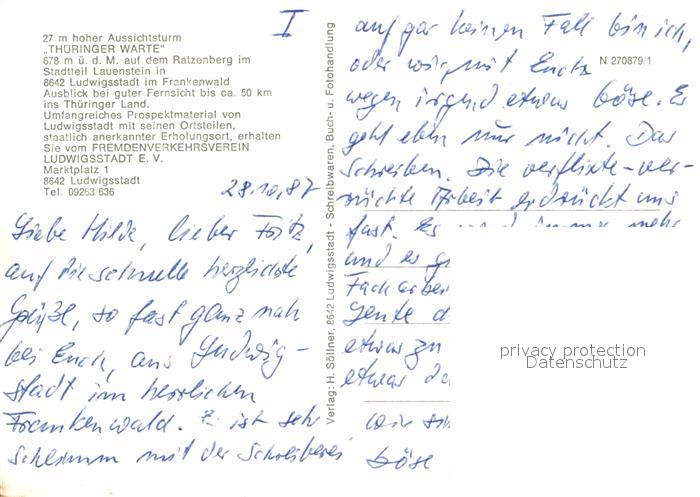 I
27 m hoher Aussichtsturm
„THÜRINGER WARTE"
678 m ü. d. M. auf dem Ratzenberg im
Stadtteil Lauenstein in
8642 Ludwigsstadt im Frankenwald
Ausblick bei guter Fernsicht bis ca. 50 km
ins Thüringer Land.
Umfangreiches Prospektmaterial von
Ludwigsstadt mit seinen Ortsteilen,
staatlich anerkannter Erholungsort, erhalten
Sie vom FREMDENVERKEHRSVEREIN
LUDWIGSSTADT E. V.
Marktplatz 1
8642 Ludwigsstadt
Tel. 09263/636
28.10.87
Liebe Hilde, lieber Fritz,
auf die schnelle herzlichste
Grüße, so fast ganz nah
bei Euch, aus Ludwig-
stadt im herrlichen
Frankenwald. Es ist sehr
schlimm mit der Schreiberei
Verlag: H. Söllner, 8642 Ludwigsstadt - Schreibwaren, Buch- u. Fotohandlung
N 270879/1
auf gar keinen Fall bin ich,
oder wir mit Euch
wegen irgend etwas böse. Es
geht eben nur nicht. Das
Schreiben. Die verflixte-ver-
rückte Arbeit erdrückt uns
fast. Es wird immer mehr
und es
Facharbei
Leute d
etwas zu
etwas
wir
böse
privacy protection
Datenschutz